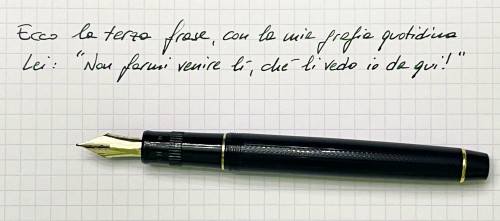 Ecco la terza frase, con la mia grafia quotidina
Lei: "Non farmi venire lì, ché li vedo io da qui!"